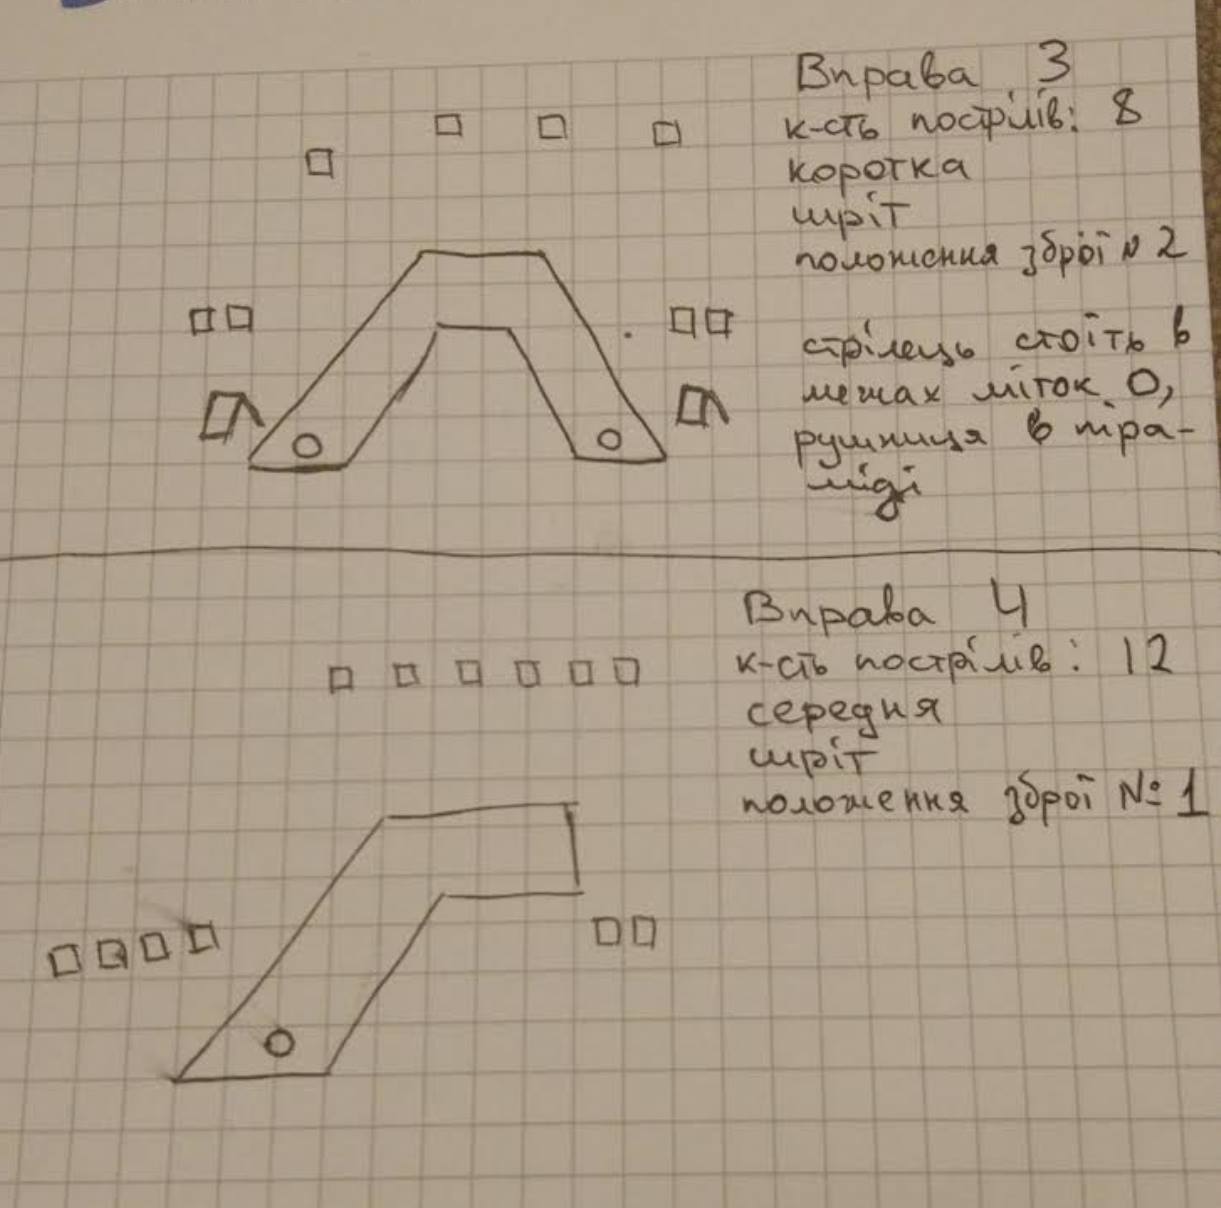 Вправа 3
к-сть пострілів: 8
коротка
шріт
положення зброї № 2
стрілець стоїть в
межах міток О,
рушниця в піра-
міді
Вправа 4
к-сть пострілів: 12
середня
шріт
положення зброї № 1